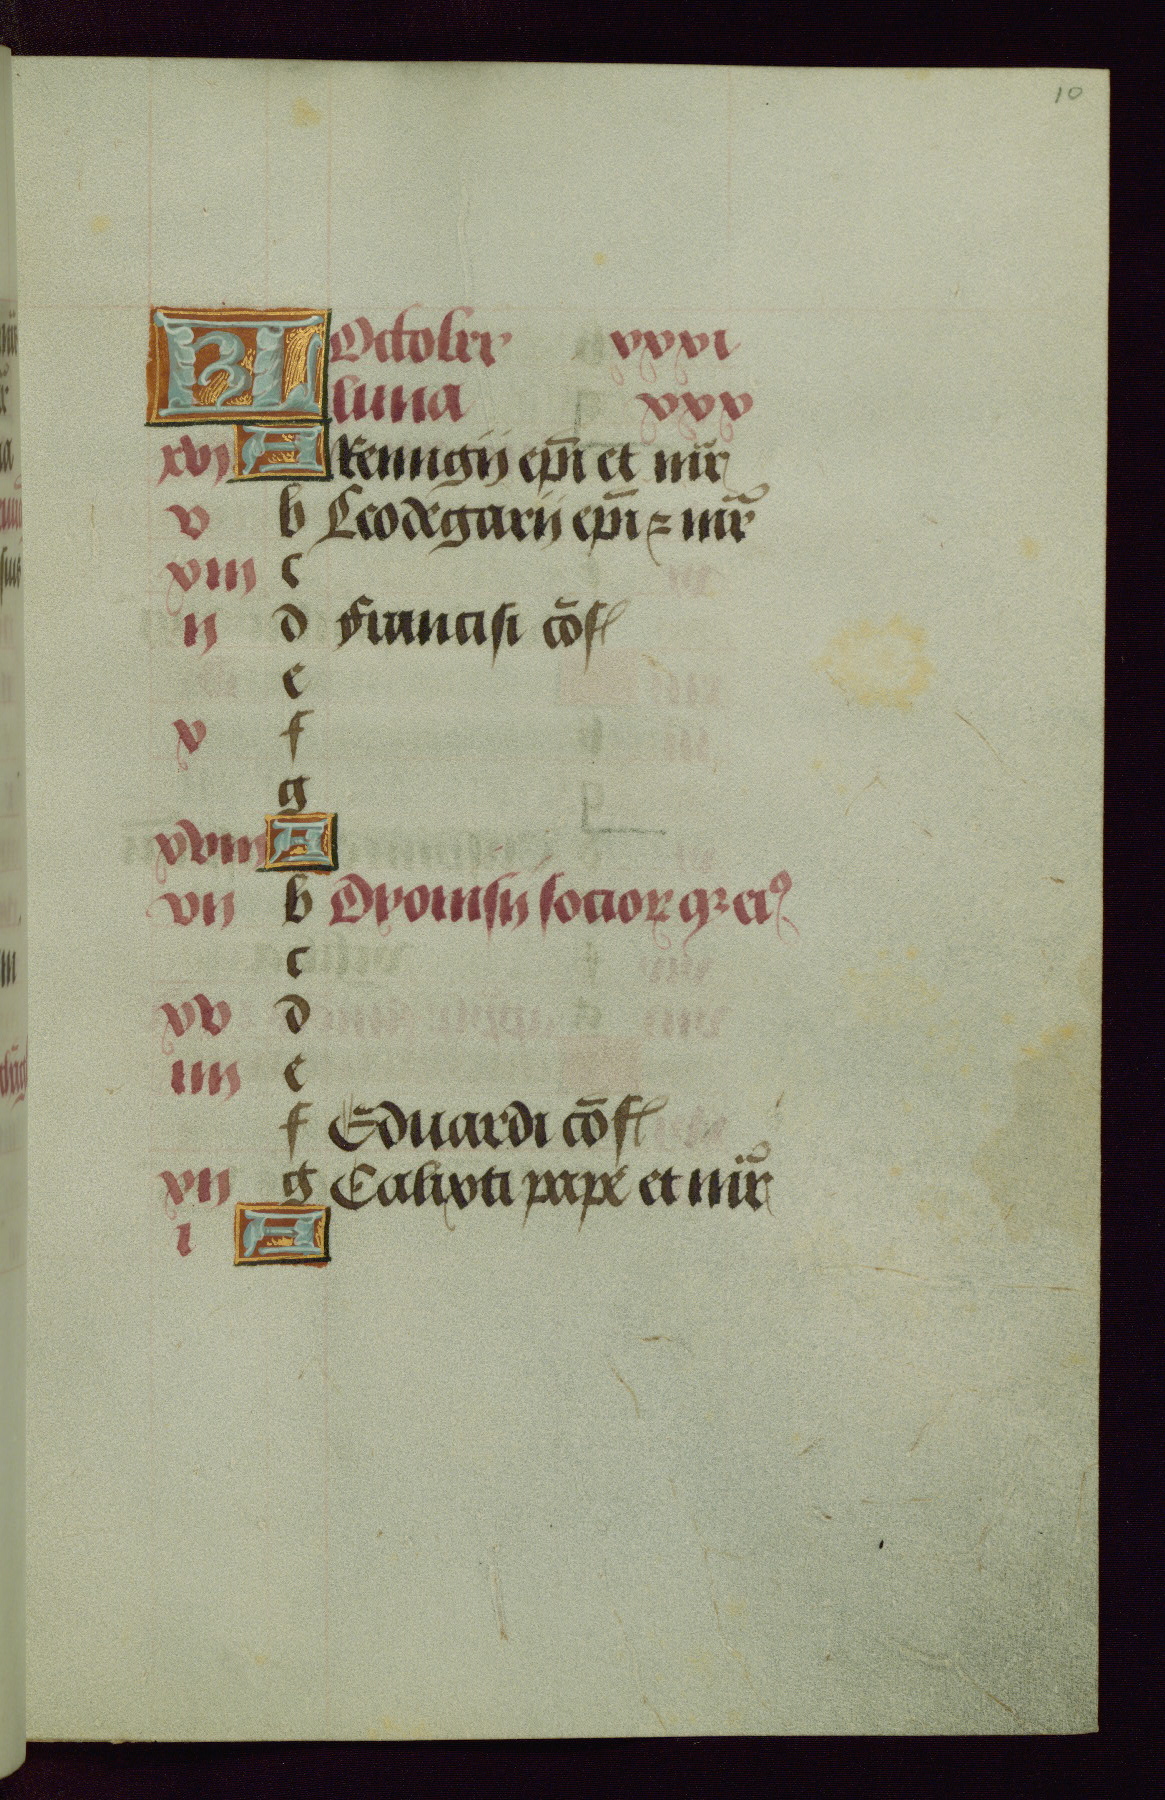 10
KL October xxxi
luna xxx
xvj A Remigij ep̄i et mr̄
v b Leodegarij ep̄i ⁊ mr̄
xiii c
ij d Francisi cōf
e
x f
g
xviii A
vij b Dyonisij socioꝝ qꝫ eiꝰ
c
xv d
iiij e
f Eduardi cōf
xij g Calixti pape et mr̄
i A